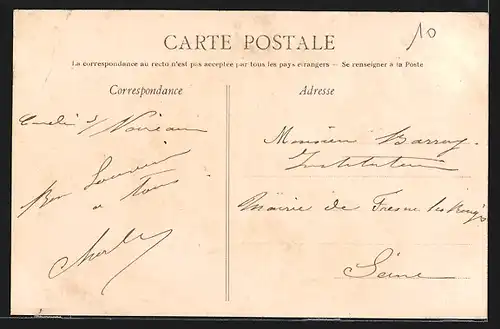 10
CARTE POSTALE
La correspondance au recto n'est pas acceptée par tous les pays étrangers – Se renseigner à la Poste
Correspondance
Adresse
Condé s/ Noireau
Bon Souvenir
à Tous
Charles
Monsieur Barray
Instituteur
Mairie de Fresne les Rungis
Seine